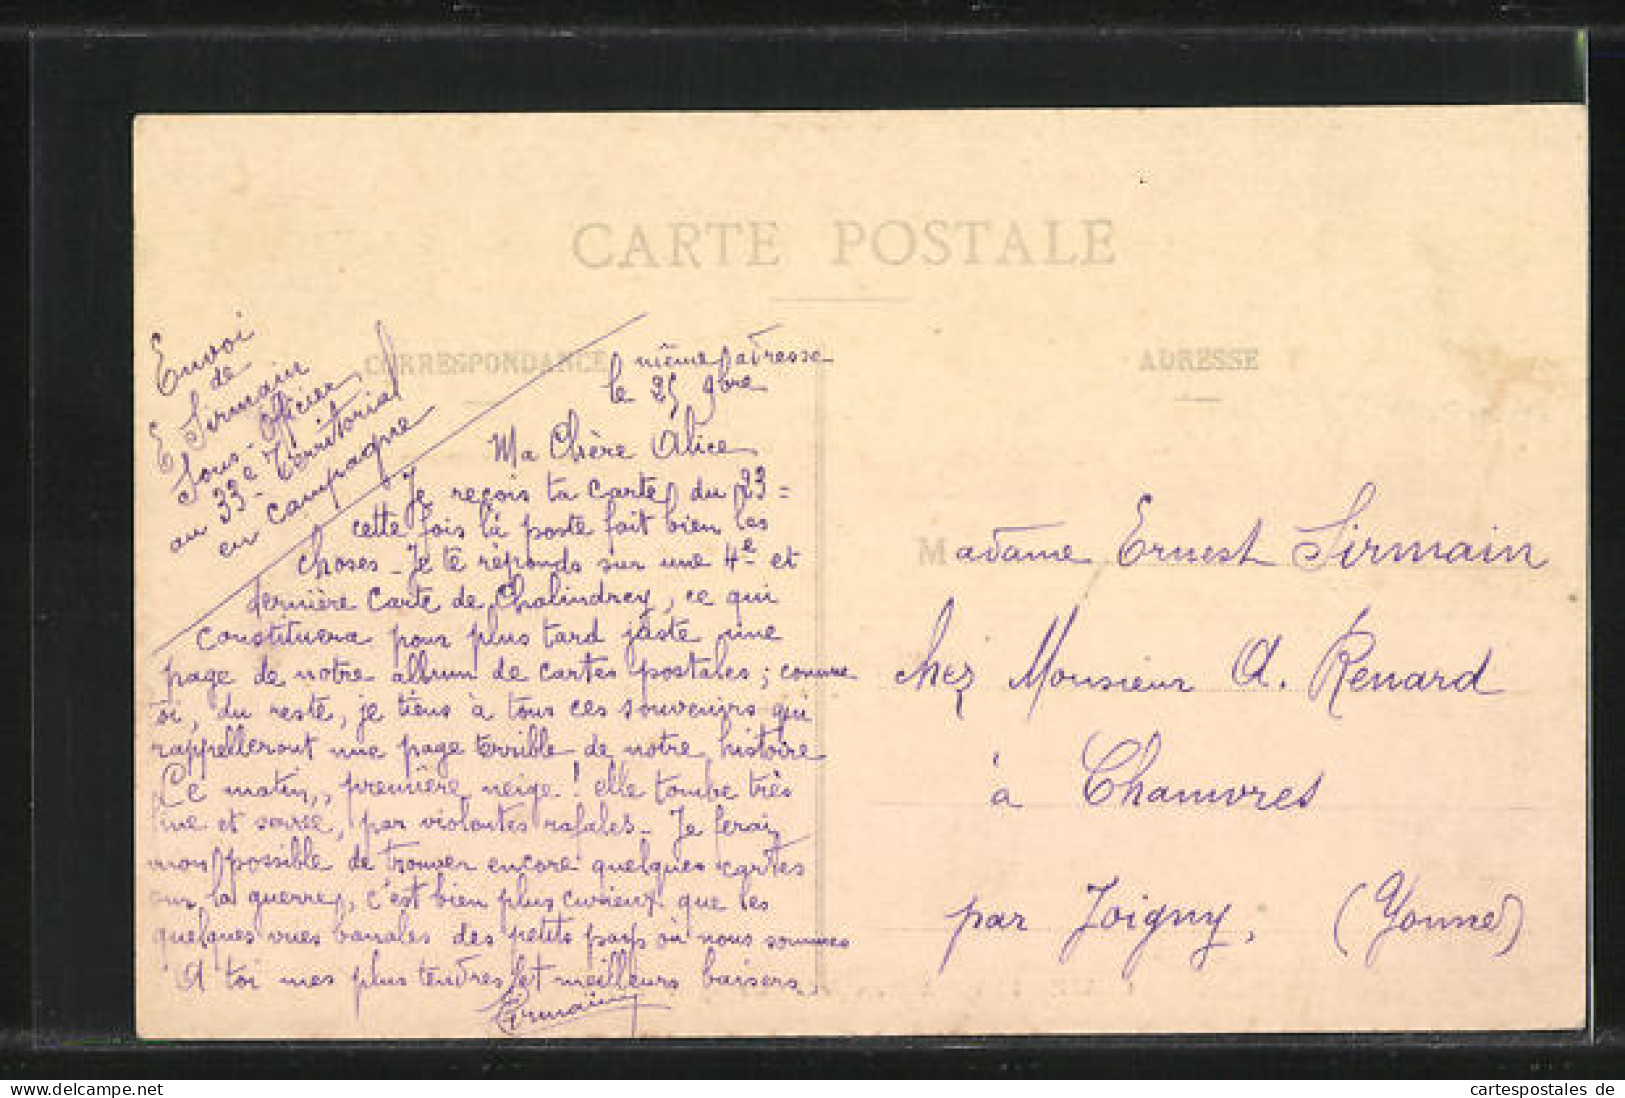 CARTE POSTALE
CORRESPONDANCE
ADRESSE
Envoi
de
E Sirmain
Sous-officier
au 33e Territorial
en campagne
même adresse
le 25 9bre
Ma Chère Alice
Je reçois ta carte du 23 =
cette fois la poste fait bien les
choses - Je te réponds sur une 4e et
dernière carte de Chalindrey, ce qui
constituera pour plus tard juste une
page de notre album de cartes postales ; comme
toi, du reste, je tiens à tous ces souvenirs qui
rappelleront une page terrible de notre histoire
Ce matin, première neige ! elle tombe très
fine et serrée, par violentes rafales - Je ferai
mon possible de trouver encore quelques cartes
sur la guerre, c'est bien plus curieux que les
quelques vues banales des petits pays où nous sommes
A toi mes plus tendres et meilleurs baisers
Madame Ernest Sirmain
chez Monsieur A. Renard
à Chamvres
par Joigny, (Yonne)
Sous-officier.delcampe.net
cartespostales de